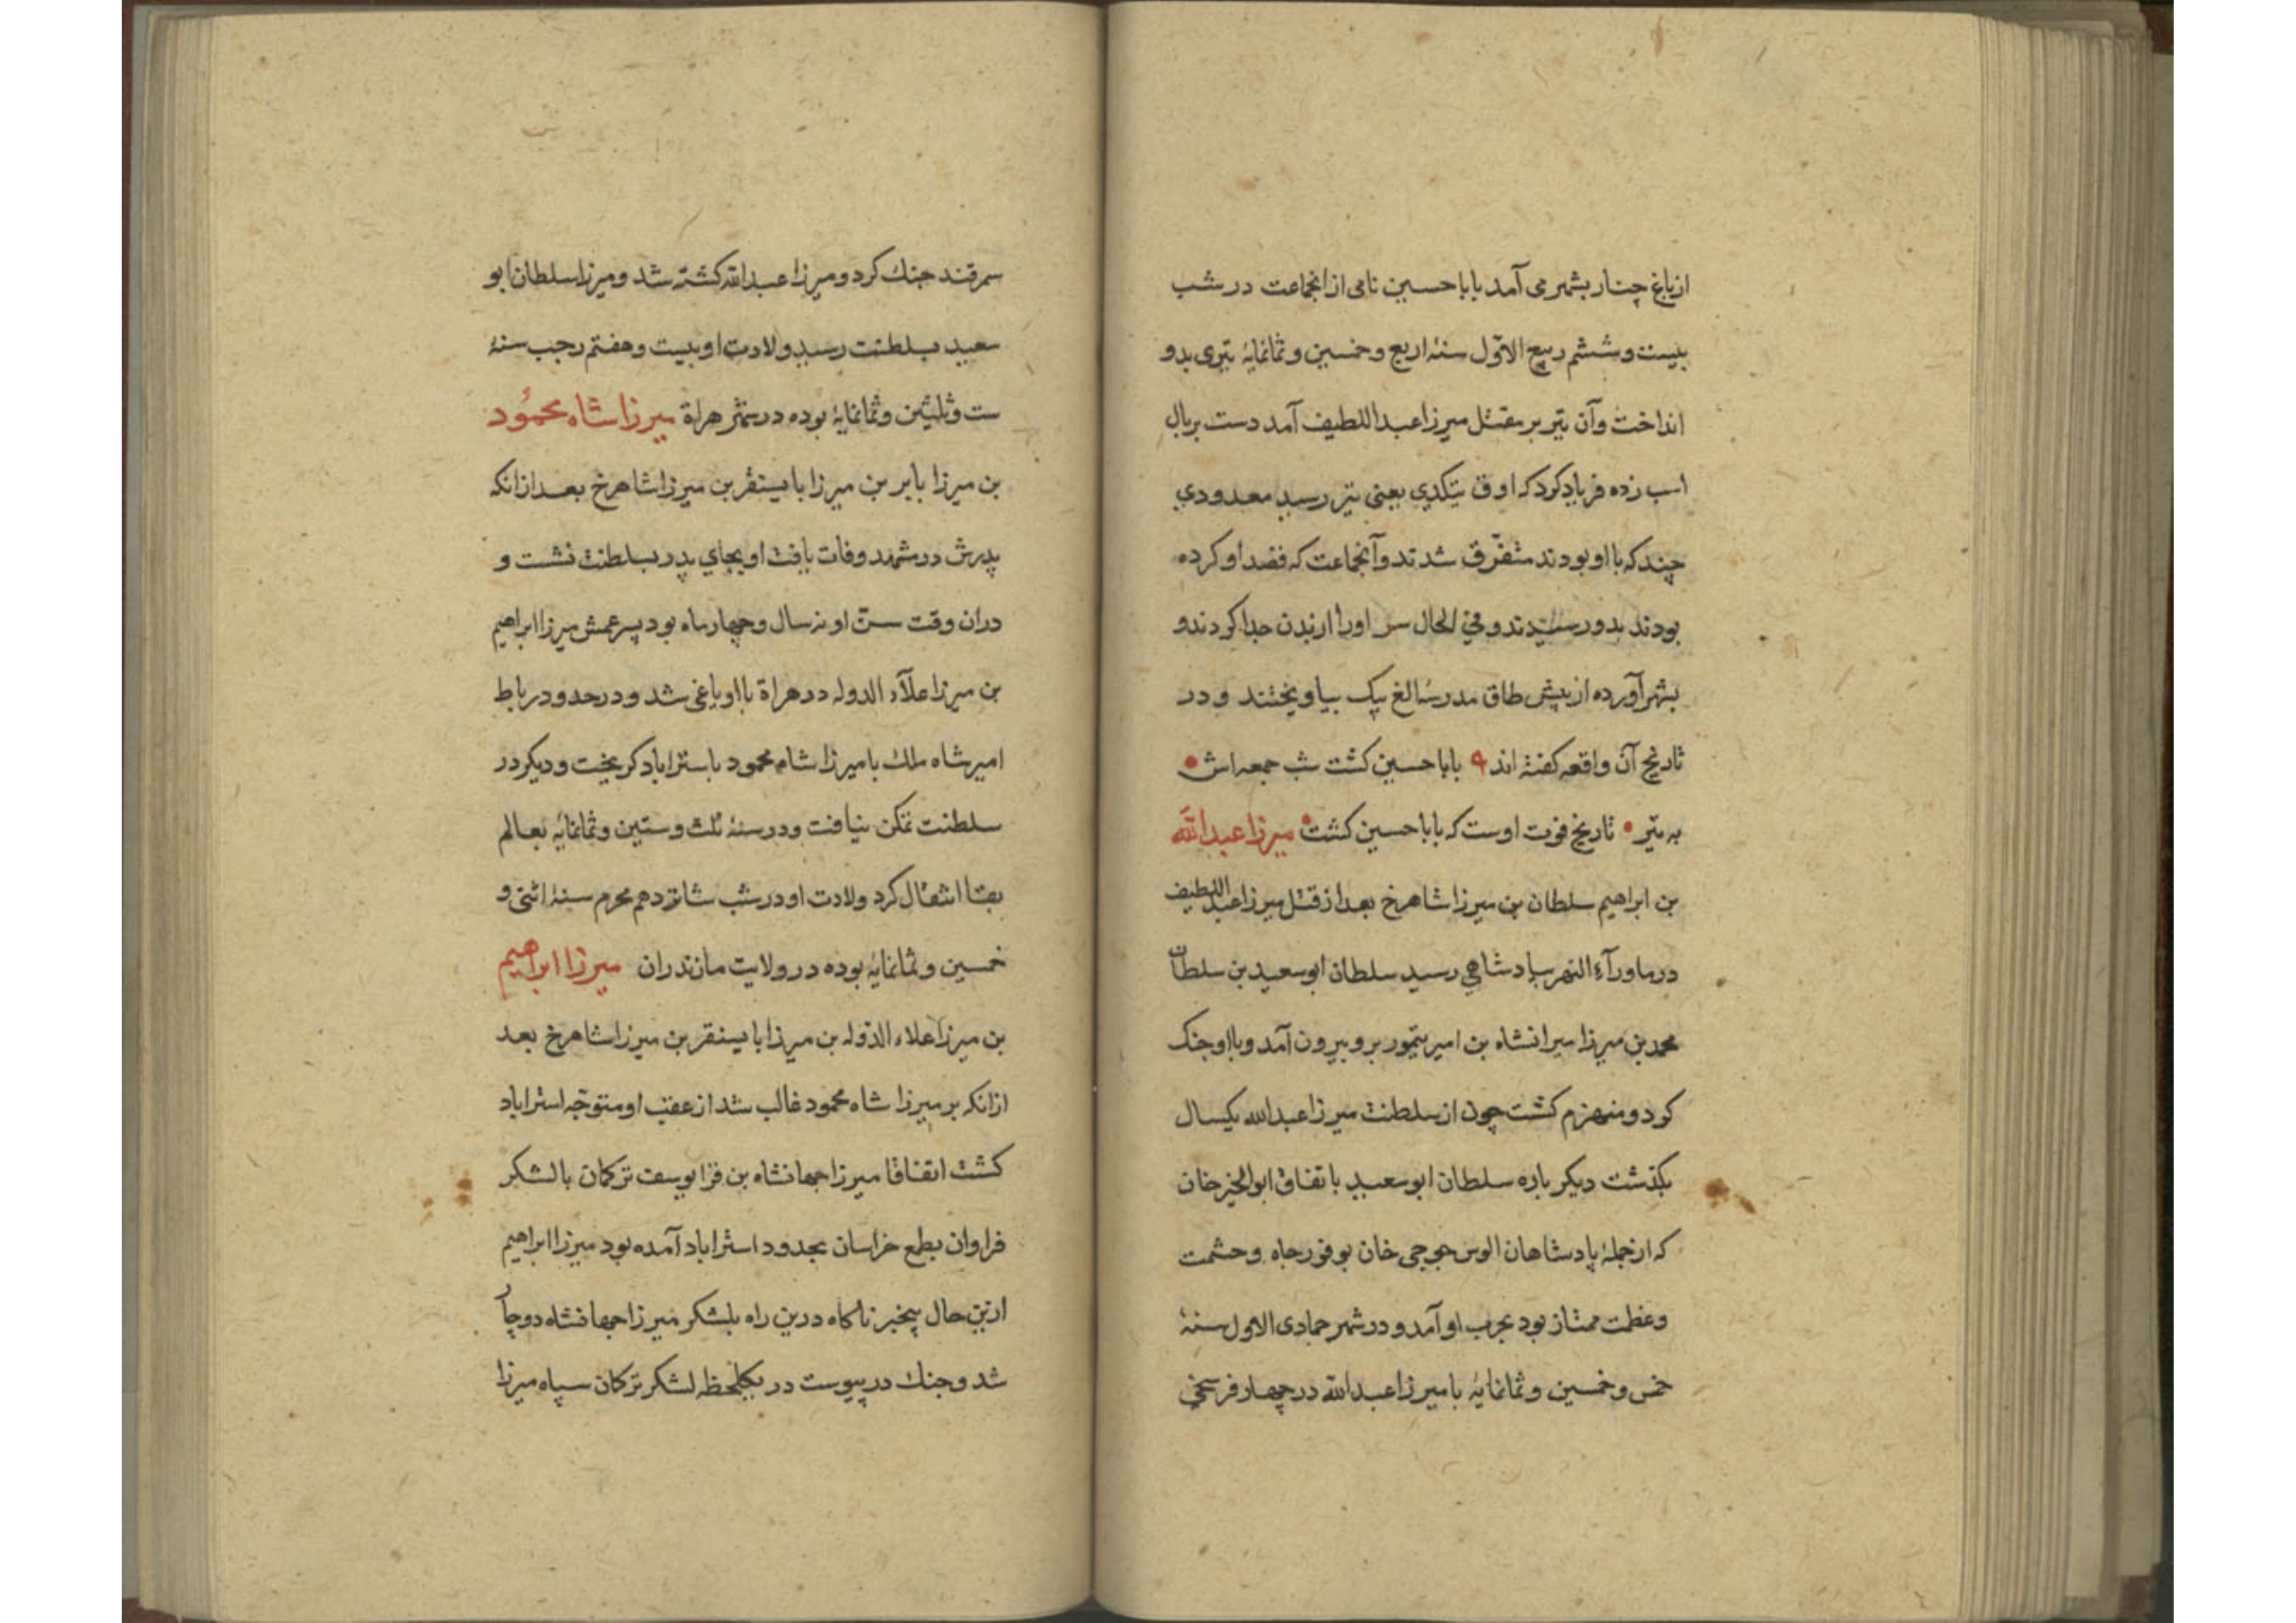 از باغ چنار بشهر می آمد بابا حسین نامی از انجماعت در شب
بیست و ششم ربیع الاوّل سنهٔ اربع و خمسین و ثمانمایهٔ تیری بدو
انداخت و آن تیر بر مقتل میرزا عبد اللطیف آمد دست بر یال
اسب زده فریاد کرد که اوق تیکدی یعنی تیر رسید معدودی
چند که با او بودند متفرّق شدند و آنجماعت که قصد او کرده
بودند بدو رسیدند و فی الحال سر او را از بدن جدا کردند و
بشهر آورده از پیش طاق مدرسهٔ الغ بیک بیاویختند و در
تاریخ آن واقعه کفته اند بابا حسین کشت شب جمعه اش
به تیر تاریخ فوت اوست که بابا حسین کشت میرزا عبد الله
بن ابراهیم سلطان بن میرزا شاهرخ بعد از قتل میرزا عبد اللطیف
در ماورآء النهر بپادشاهی رسید سلطان ابو سعید بن سلطان
محمد بن میرزا میرانشاه بن امیر تیمور برو بیرون آمد و با او جنک
کرد و منهزم کشت چون از سلطنت میرزا عبد الله یکسال
بکذشت دیکر باره سلطان ابو سعید باتفاق ابو الخیر خان
که از جملهٔ پادشاهان الوس جوجی خان بوفور جاه و حشمت
و عظمت ممتاز بود بحرب او آمد و در شهر جمادی الاول سنهٔ
خمس و خمسین و ثمانمایهٔ با میرزا عبد الله در چهار فرسخی
سمرقند جنك کرد و میرزا عبد الله کشته شد و میرزا سلطان ابو
سعید بسلطنت رسید ولادت او بیست و هفتم رجب سنهٔ
ست و ثلیثین و ثمانمایهٔ بوده در شهر هراة میرزا شاه محمُود
بن میرزا بابر بن میرزا بایسنقر بن میرزا شاهرخ بعد از انکه
پدرش در مشهد وفات یافت او بجای پدر بسلطنت نشست و
دران وقت سنّ او نه سال و چهار ماه بود پسر عمش میرزا ابراهیم
بن میرزا علآء الدوله در هراة با او یاغی شد و در حدود رباط
امیر شاه ملك با میرزا شاه محمود باستراباد کریخت و دیکر در
سلطنت تمکن نیافت و در سنهٔ ثلث و ستین و ثمانمایهٔ بعالم
بقا انتقال کرد ولادت او در شب شانزدهم محرم سنهٔ اثنی و
خمسین و ثمانمایهٔ بوده در ولایت مازندران میرزا ابراهیم
بن میرزا علاء الدّوله بن میرزا بایسنقر بن میرزا شاهرخ بعد
ازانکه بر میرزا شاه محمود غالب شد از عقب او متوجّه استراباد
کشت اتفاقا میرزا جهانشاه بن قرا یوسف ترکمان با لشکر
فراوان بطمع خراسان بحدود استراباد آمده بود میرزا ابراهیم
ازین حال بیخبر ناکاه درین راه بلشکر میرزا جهانشاه دوچار
شد و جنك در پیوست در یکلحظه لشکر ترکمان سپاه میرزا